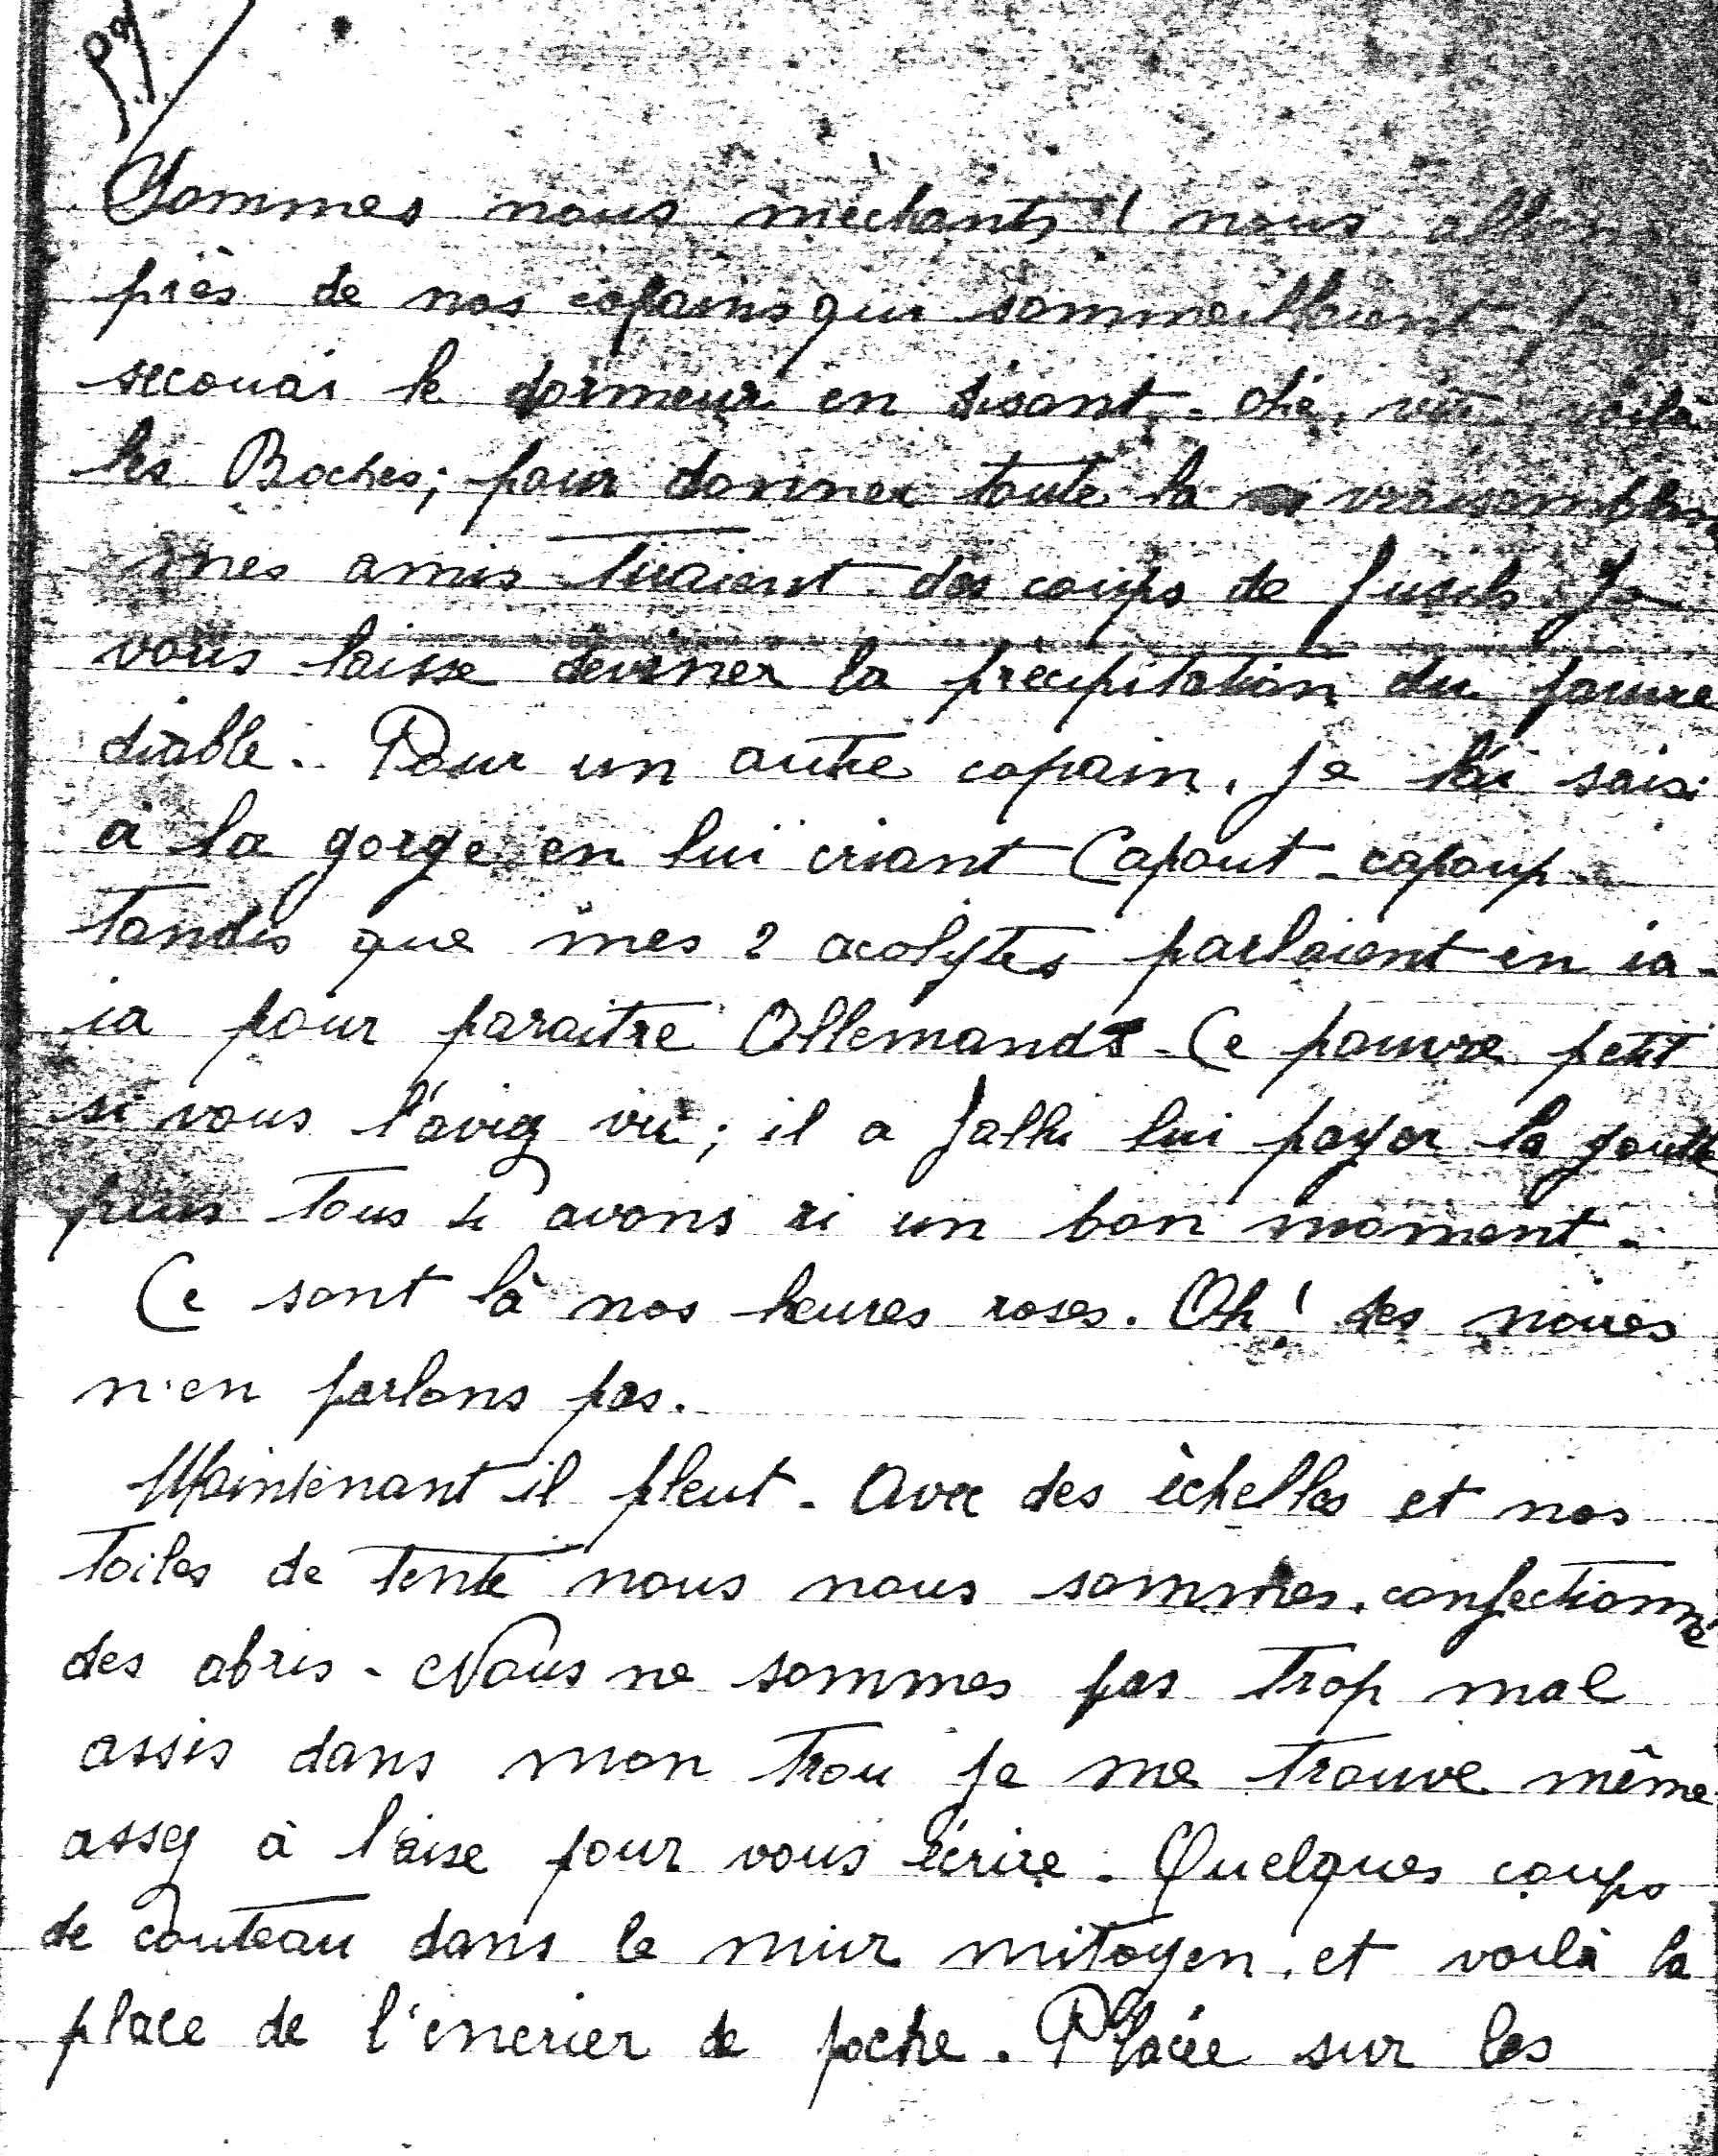 Sommes nous méchants ! nous
près de nos copains qui sommeillaient
secouai le dormeur en disant. Ohé, voilà
les Boches; pour donner toute la
mes amis tiraient des coups de fusils. Je
vous laisse deviner la précipitation du pauvre
diable. Pour un autre copain, je l'ai saisi
à la gorge en lui criant Capout - capoup
Tandis que mes 2 acolytes parlaient en ia -
ia pour paraitre Allemands. Ce pauvre petit
si vous l'aviez vu; il a fallu lui payer la goutte
puis tous 4 avons ri un bon moment.
Ce sont là nos heures roses. Oh! des noires
n'en parlons pas.
Maintenant il pleut. Avec des échelles et nos
toiles de tente nous nous sommes confectionné
des abris. Nous ne sommes pas trop mal
assis dans mon trou je me trouve même
assez à l'aise pour vous écrire. Quelques coups
de couteau dans le mur mitoyen, et voilà la
place de l'encrier de poche. Placée sur les